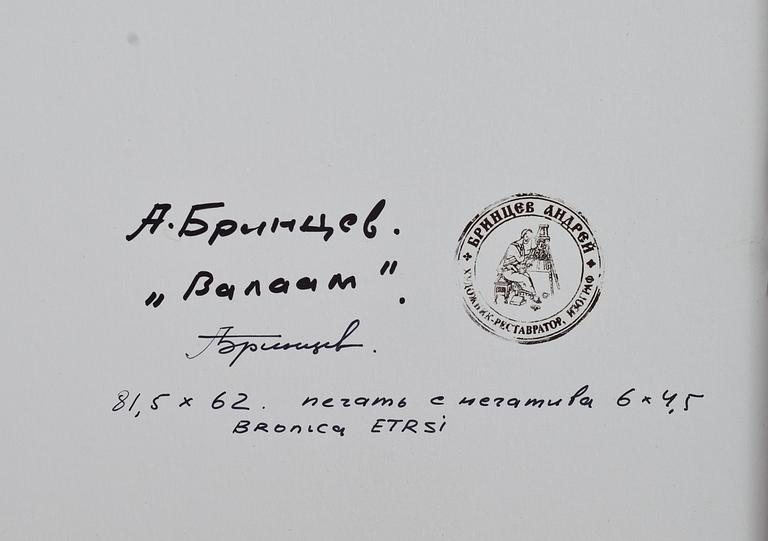 А. Бринцев.
„Валаам".
АБринцев.
81,5 x 62. печать с негатива 6 x 4,5
BRonica ETRSi
БРИНЦЕВ АНДРЕЙ
ХУДОЖНИК-РЕСТАВРАТОР, ИЗОГРАФ